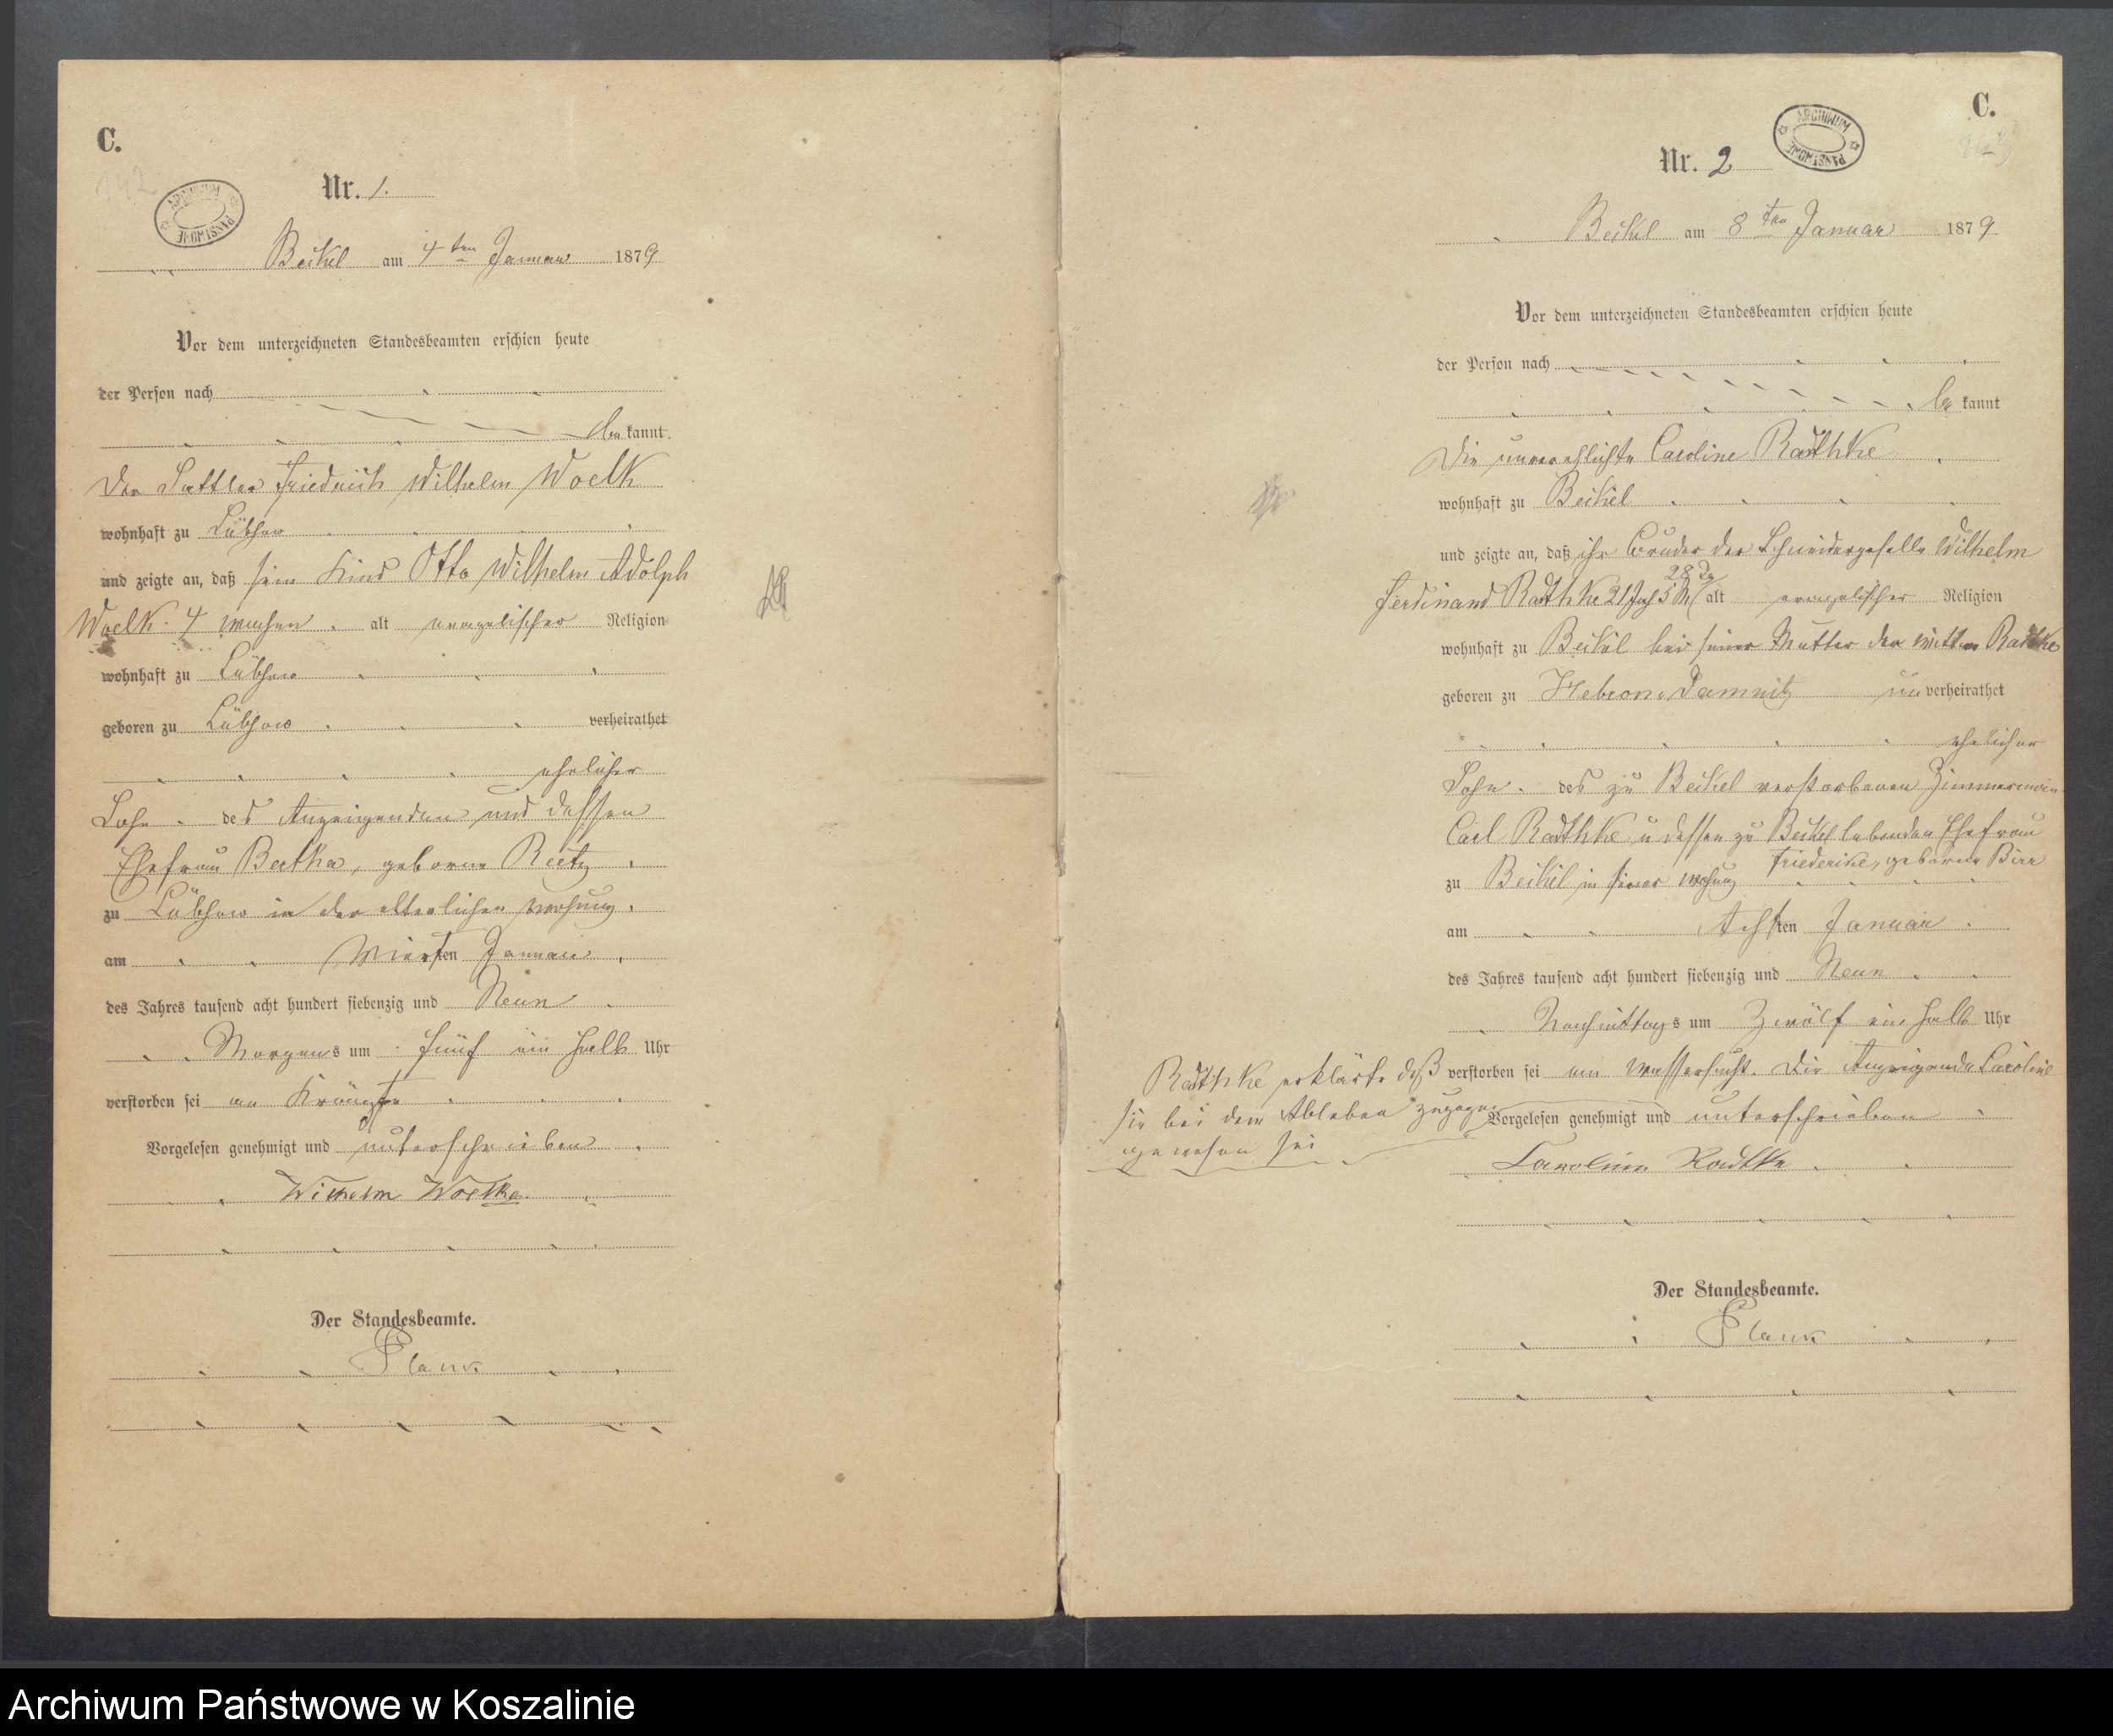 C.
142
ARCHIWUM PAŃSTWOWE
Nr. 1.
Beckel am 4ten Januar 1879
Vor dem unterzeichneten Standesbeamten erschien heute
der Person nach
be kannt.
Der Sattler Friedrich Wilhelm Woelk
wohnhaft zu Lübzow
und zeigte an, daß sein Kind Otto Wilhelm Adolph
Woelk 4 Wochen alt evangelischer Religion
wohnhaft zu Lübzow
geboren zu Lübzow verheirathet
ehelicher
Sohn des Anzeigenden und dessen
Ehefrau Bertha, geborne Reetz
zu Lübzow in der elterlichen Wohnung.
am Vierten Januar
des Jahres tausend acht hundert siebenzig und Neun
Morgens um fünf ein halb Uhr
verstorben sei an Krämpfe
Vorgelesen genehmigt und unterschrieben
Wilhelm Woelke
Der Standesbeamte.
Plank
C.
143
ARCHIWUM PAŃSTWOWE
Nr. 2
Beckel am 8ten Januar 1879
Vor dem unterzeichneten Standesbeamten erschien heute
der Person nach
be kannt
Die unverehlichte Caroline Radthke
wohnhaft zu Beckel
und zeigte an, daß ihr Bruder der Schneidergeselle Wilhelm
Ferdinand Radthke 21 Jah 5 M 28 Tg alt evangelischer Religion
wohnhaft zu Beckel bei seiner Mutter der Wittwe Radthke
geboren zu Hebron-Damnitz un verheirathet
ehelicher
Sohn des zu Beckel verstorbenen Zimmermann
Carl Radthke u dessen zu Beckel lebenden Ehefrau
Friederike, geborne Birr
zu Beckel in seiner Wohnung
am Achten Januar
des Jahres tausend acht hundert siebenzig und Neun
Nachmittags um Zwölf ein halb Uhr
verstorben sei an Wassersucht. Die Anzeigende Caroline
Radthke erklärte daß
sie bei dem Ableben zugegen
gewesen sei
Vorgelesen genehmigt und unterschrieben
Caroline Radtke
Der Standesbeamte.
Plank
Archiwum Państwowe w Koszalinie